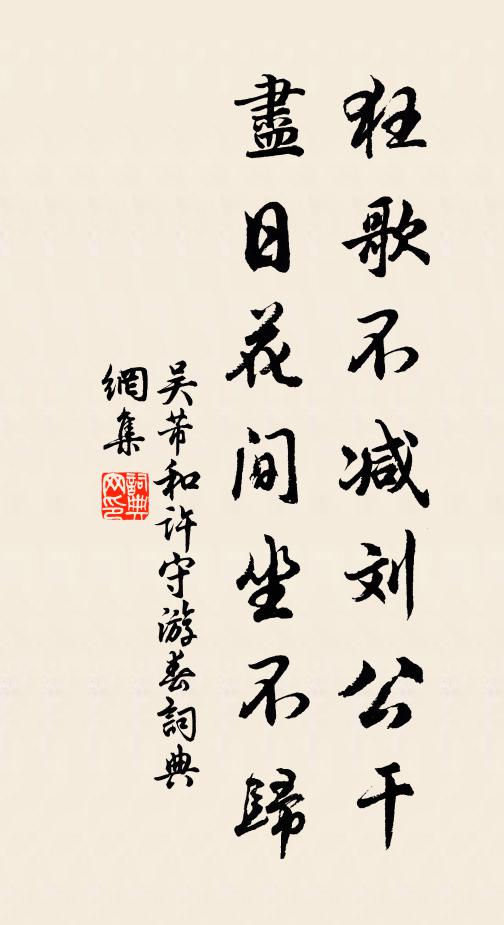 狂歌不减刘公干
盡日花间坐不歸
吴芾和许守游春詞典
網集
詞典网印